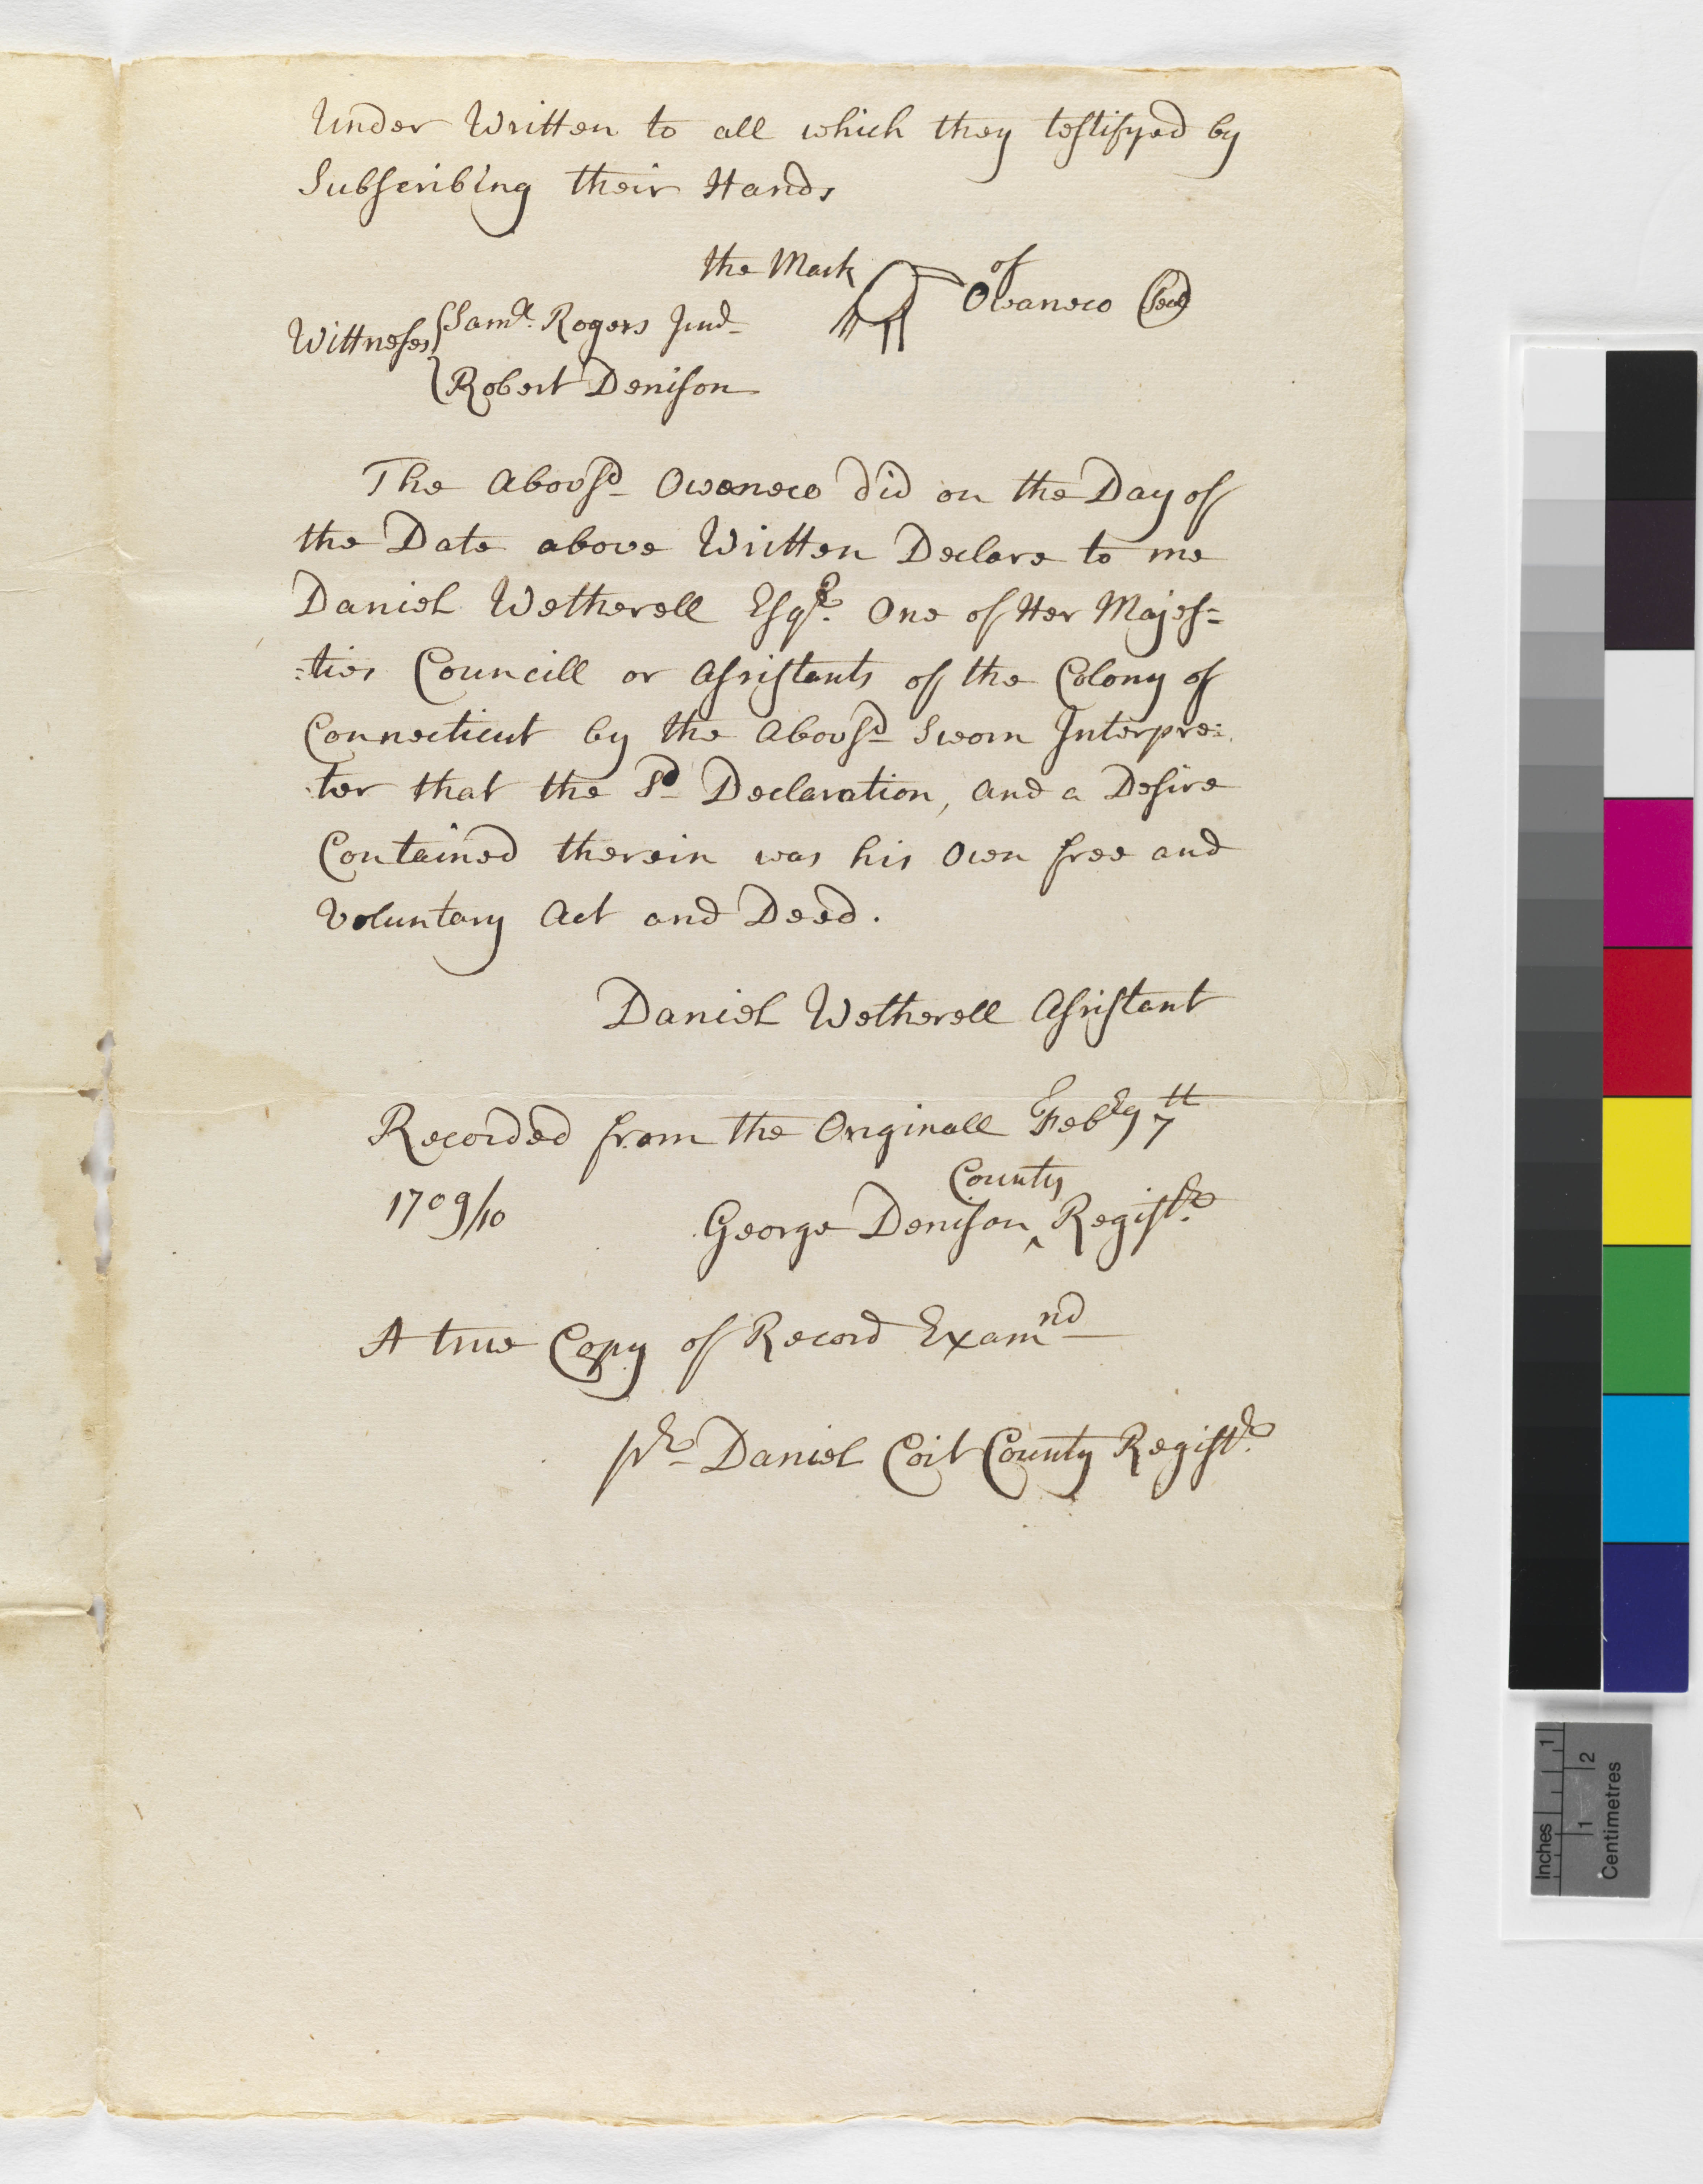 Under Written to all which they testifyed by
Subscribing their Hands
the Mark of
Owaneco Seal
Wittnesses Saml. Rogers Jund
Robert Denison
The Abovsd Oweneco did on the Day of
the Date above Written Declare to me
Daniel Wetherell Esqr. One of Her Majes=
=ties Councill or Assistants of the Colony of
Connecticut by the Abovsd Sworn Interpre=
ter that the Sd Declaration, and a Desire
Contained therein was his Own free and
Voluntary Act and Deed.
Daniel Wetherell Assistant
Recorded from the Originall Febry 7th
1709/10
County
George Denison ^ Registr.
A true Copy of Record Examnd
pr Daniel Coit County Registr.
Inches 1
1 2
Centimetres